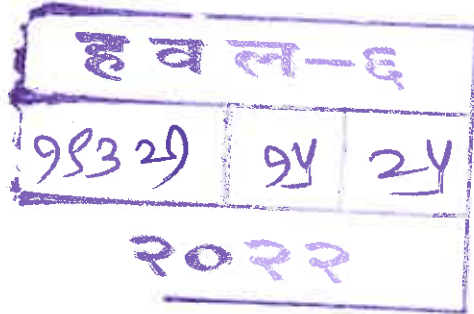 हवल-६
१९३२१ १५ २५
२०२२